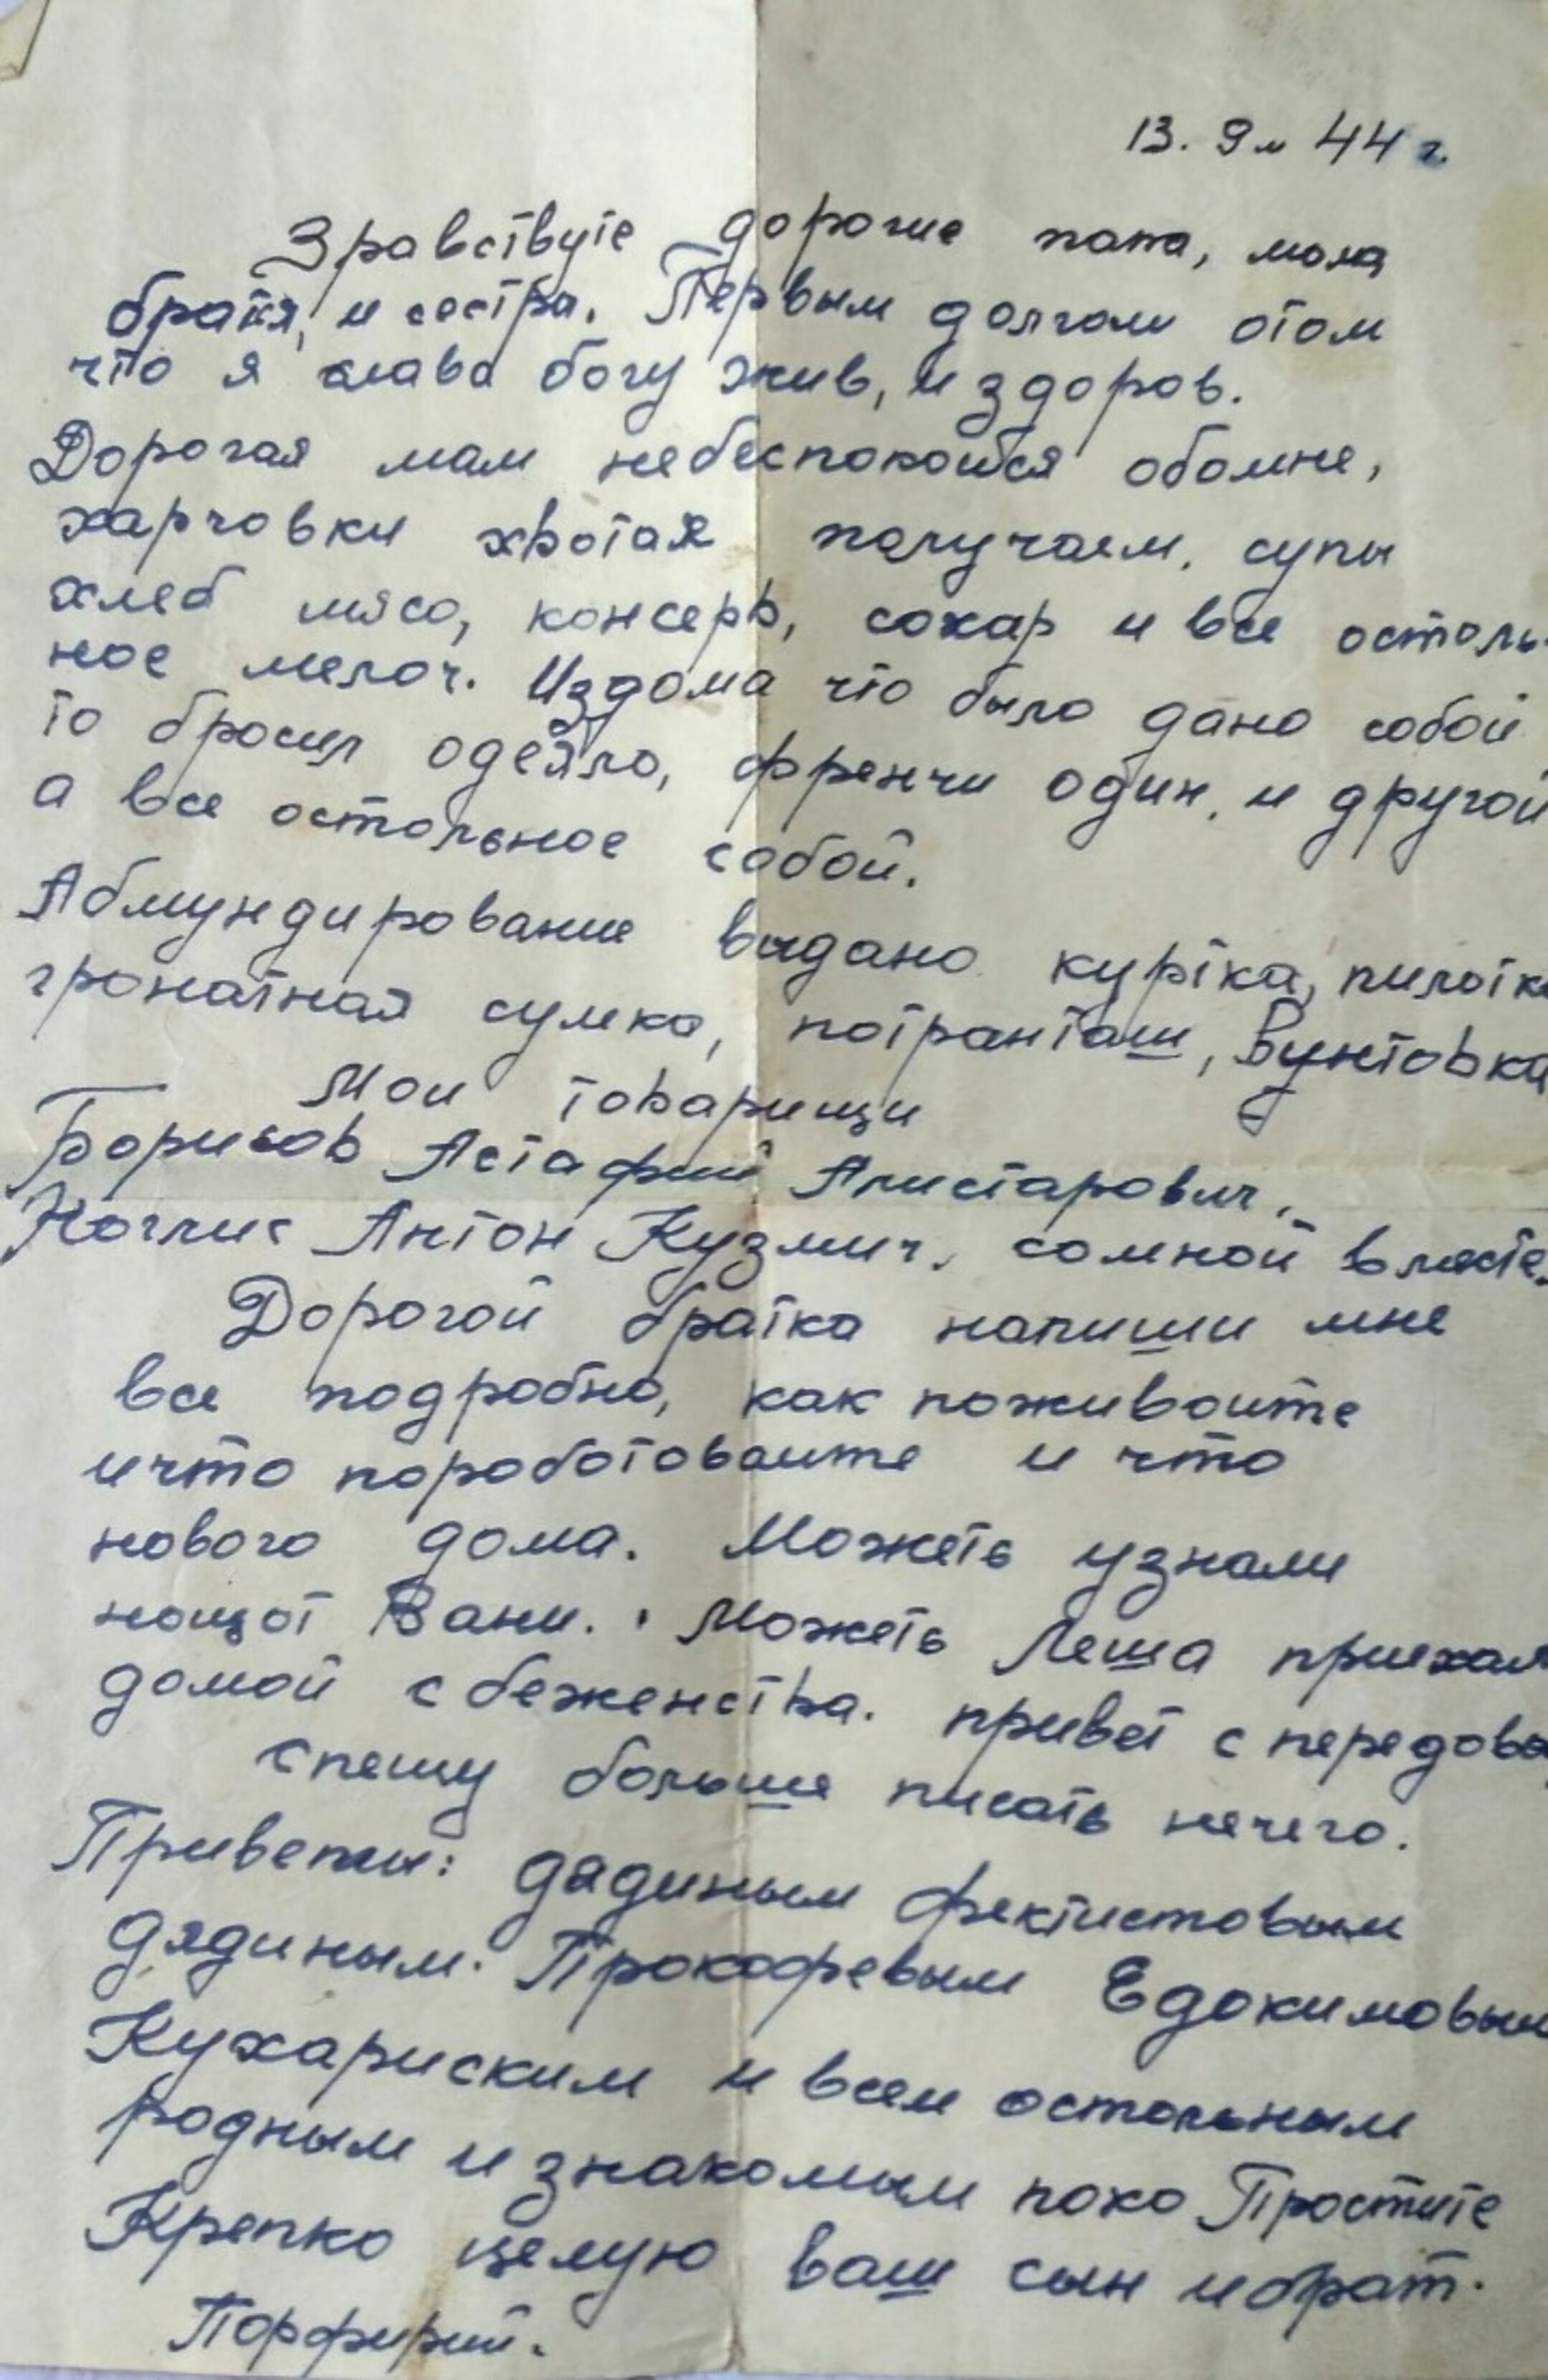 13. 9м 44 г.
Зравствуте дорогие папа, мама
братя, и сестра. Первым долгом отом
что я слава богу жив, и здоров.
Дорогая мам небеспокойся обомне,
харчовки хвотая получаем, супы
хлеб мясо, консерв, сохар и все осталь-
ное мелоч. Издома что было дано собой
то бросил одеяло, френчи один, и другой
а все остальное собой.
Абмундирование выдано куртка, пилотка
гронатная сумка, потранташ, Вунтовка
Мои товарищи
Борисов Астафий Алистарович,
Антон Кузмич, сомной вместе.
Дорогой братка напиши мне
все подробно, как поживоите
ичто поработоваите и что
нового дома. Можеть узнали
нощот Вани. Можеть Леша приехал
домой с беженства. привет с передовой
спешу больше писать нечего.
Приветы: дядиным Фектистовым
дядиным. Прокофевым Едокимовым
Кухариским и всем остальным
родным и знакомым пока Простите
Крепко целую ваш сын ибрат.
Порфирий.